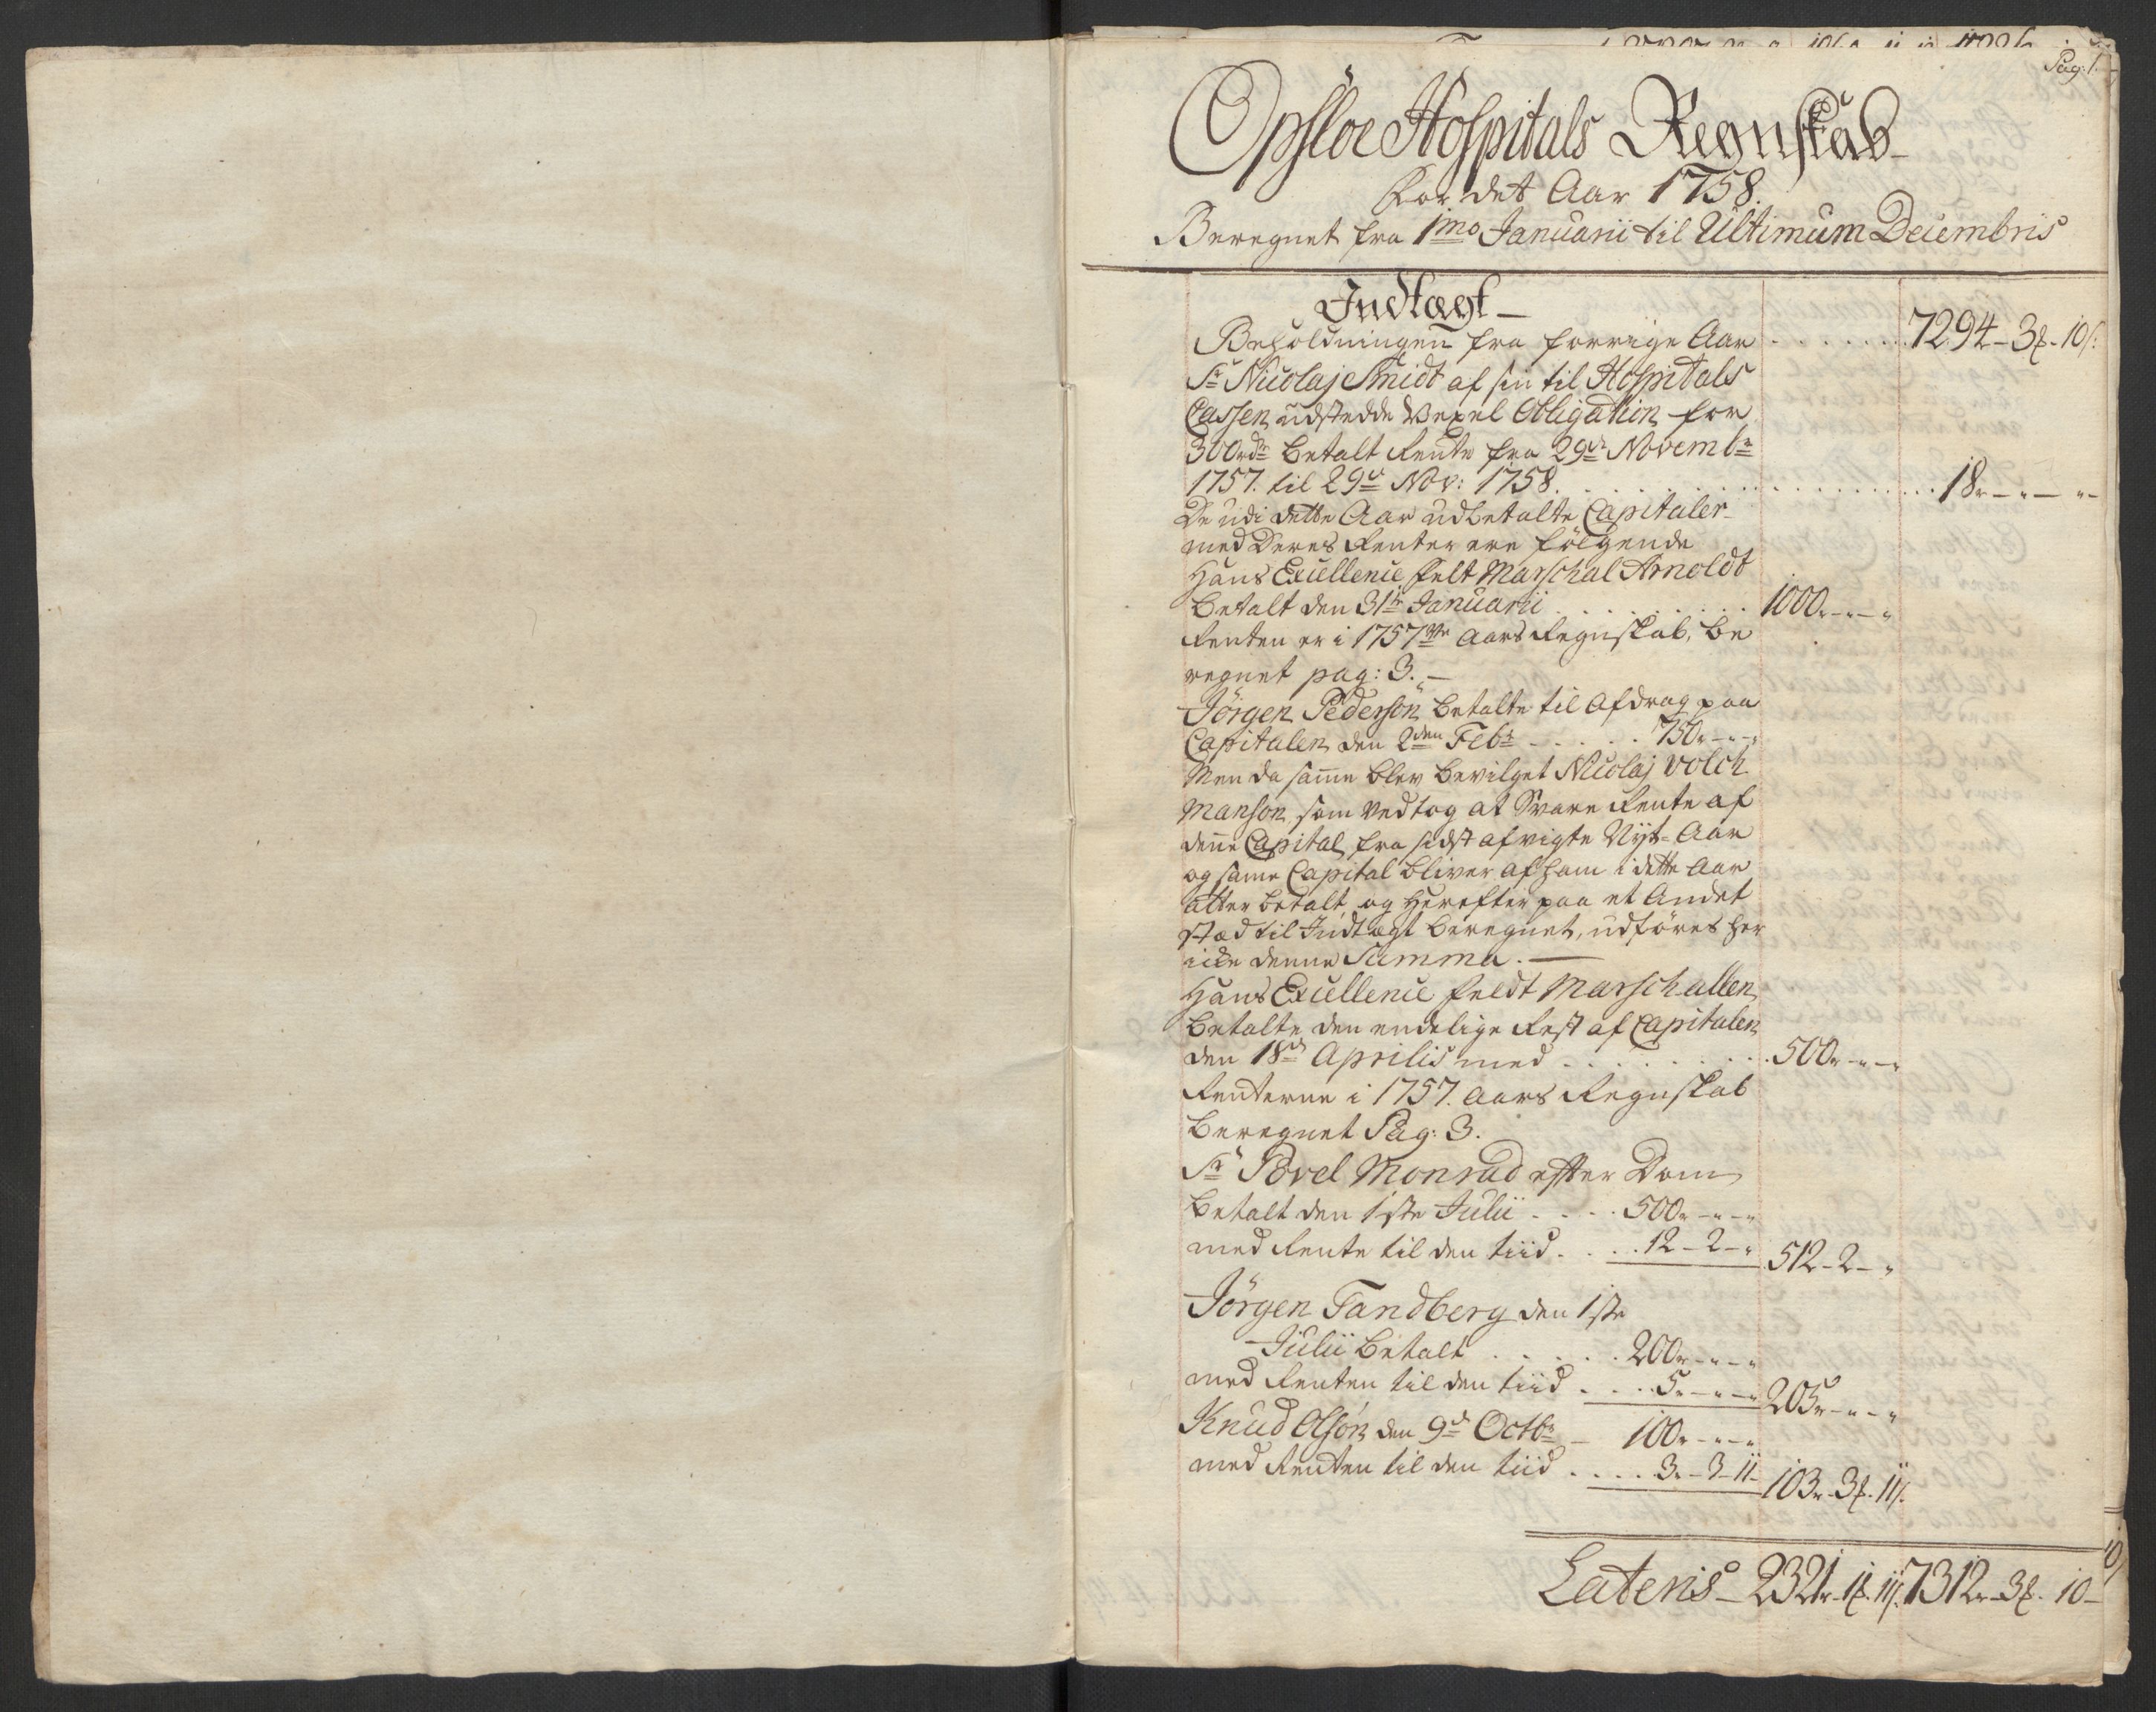 Pag: 1.
Opsloe Hospitals Regnskab
for det Aar 1758.
Beregnet fra 1mo Januarii til Ultimum Decembris
Indtægt
Beholdningen fra forrige Aar . . . . . . . 7294 - 3 - 10
Sr Nicolaj Smidt af sin til Hospitals
Cassen udstædde Vexel Obligation for
300rdr betalt Rente fra 29de Novembr
1757. til 29de Nov: 1758. . . . . . . . 18 - " - "
De udi dette Aar udbetalte Capitaler
med Deres Renter ere fölgende
Hans Excellence felt Marschal Arnoldt
betalt den 31te Januarii . . . . . . . 1000 - " - "
Renten er i 1757de Aars Regnskab, be
regnet pag: 3. -
Jörgen Pedersön betalte til Afdrag paa
Capitalen den 2den Febr - . . . . 750 - " - "
Men da samme blev bevilget Nicolaj Volch
Manson som vedtog at Svare Rente af
denne Capital fra sidst afvigte Nyt-Aar
og same Capital bliver af ham i dette Aar
atter betalt, og herefter paa et Andet
stæd til Indtægt beregnet, udföres her
icke denne Summa. -
Hans Excellence feldt Marschallen
betalte den endelige Rest af Capitalen
den 18de Aprilis med . . . . . . . 500 - " - "
Renterne i 1757. Aars Regnskab
beregnet Pag: 3.
Sr Povel Monrad efter Dom
betalt den 1ste Julii . . . . 500 - " - "
med Rente til den tiid . . . 12 - 2 - " 512 - 2 - "
Jörgen Tandberg den 1ste
Julii betalt . . . . . 200 - " - "
med Renten til den tiid . . . 5 - " - " 205 - " - "
Knud Olsön den 9de Octbr - 100 - " - "
med Renten til den tiid . . . . 3 - 3 - 11 103 - 3 - 11
Lateris - 2321 - 1 - 11 7312 - 3 - 10 -